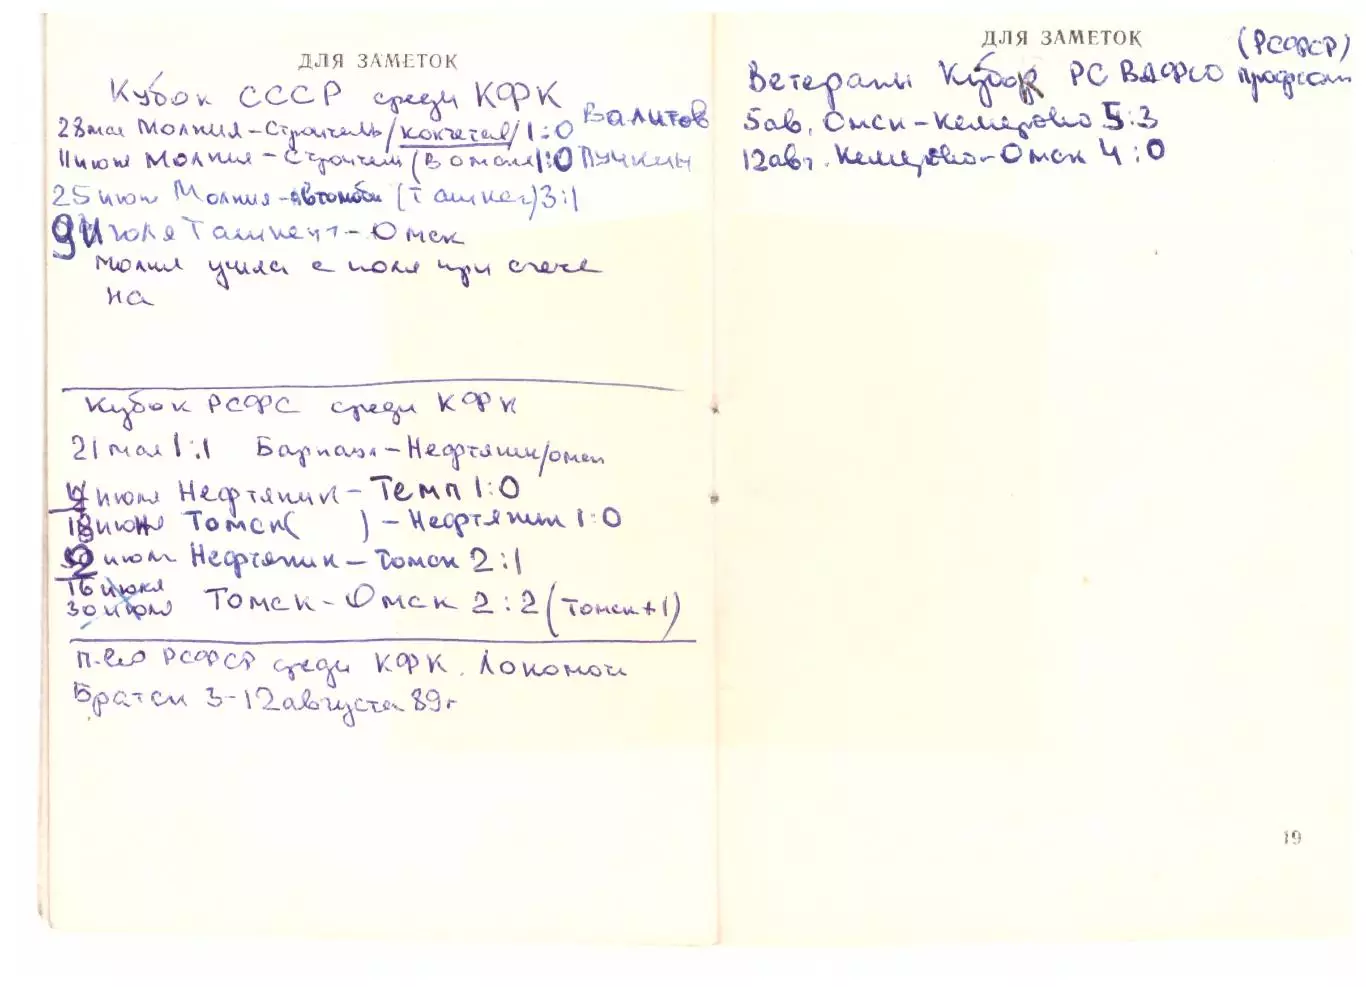 ДЛЯ ЗАМЕТОК
Кубок СССР среди КФК
28 мая Молния - Строитель /кокчетав/ 1:0 Валитов
11 июн Молния - Строител (в омске 1:0 Пучкины
25 июн Молния - автомоби (Ташкент) 3:1
9 июля Ташкент - Омск
Молния ушла с поля при счете
на
Кубок РСФС среди КФК
21 мая 1:1 Барнаул - Нефтяник/омск
июля Нефтяник - Темп 1:0
18 июня Томск( ) - Нефтяник 1:0
2 июля Нефтяник - Томск 2:1
16 июля
30 июля Томск - Омск 2:2 (Томск +1)
п-во РСФСР среди КФК. Локомоти
Братск 3-12 августа 89 г
ДЛЯ ЗАМЕТОК
(РСФСР)
Ветераны Кубок РС ВДФСО профсоюз
5 ав. Омск - Кемерово 5:3
12 авг. Кемерово - Омск 4:0
19